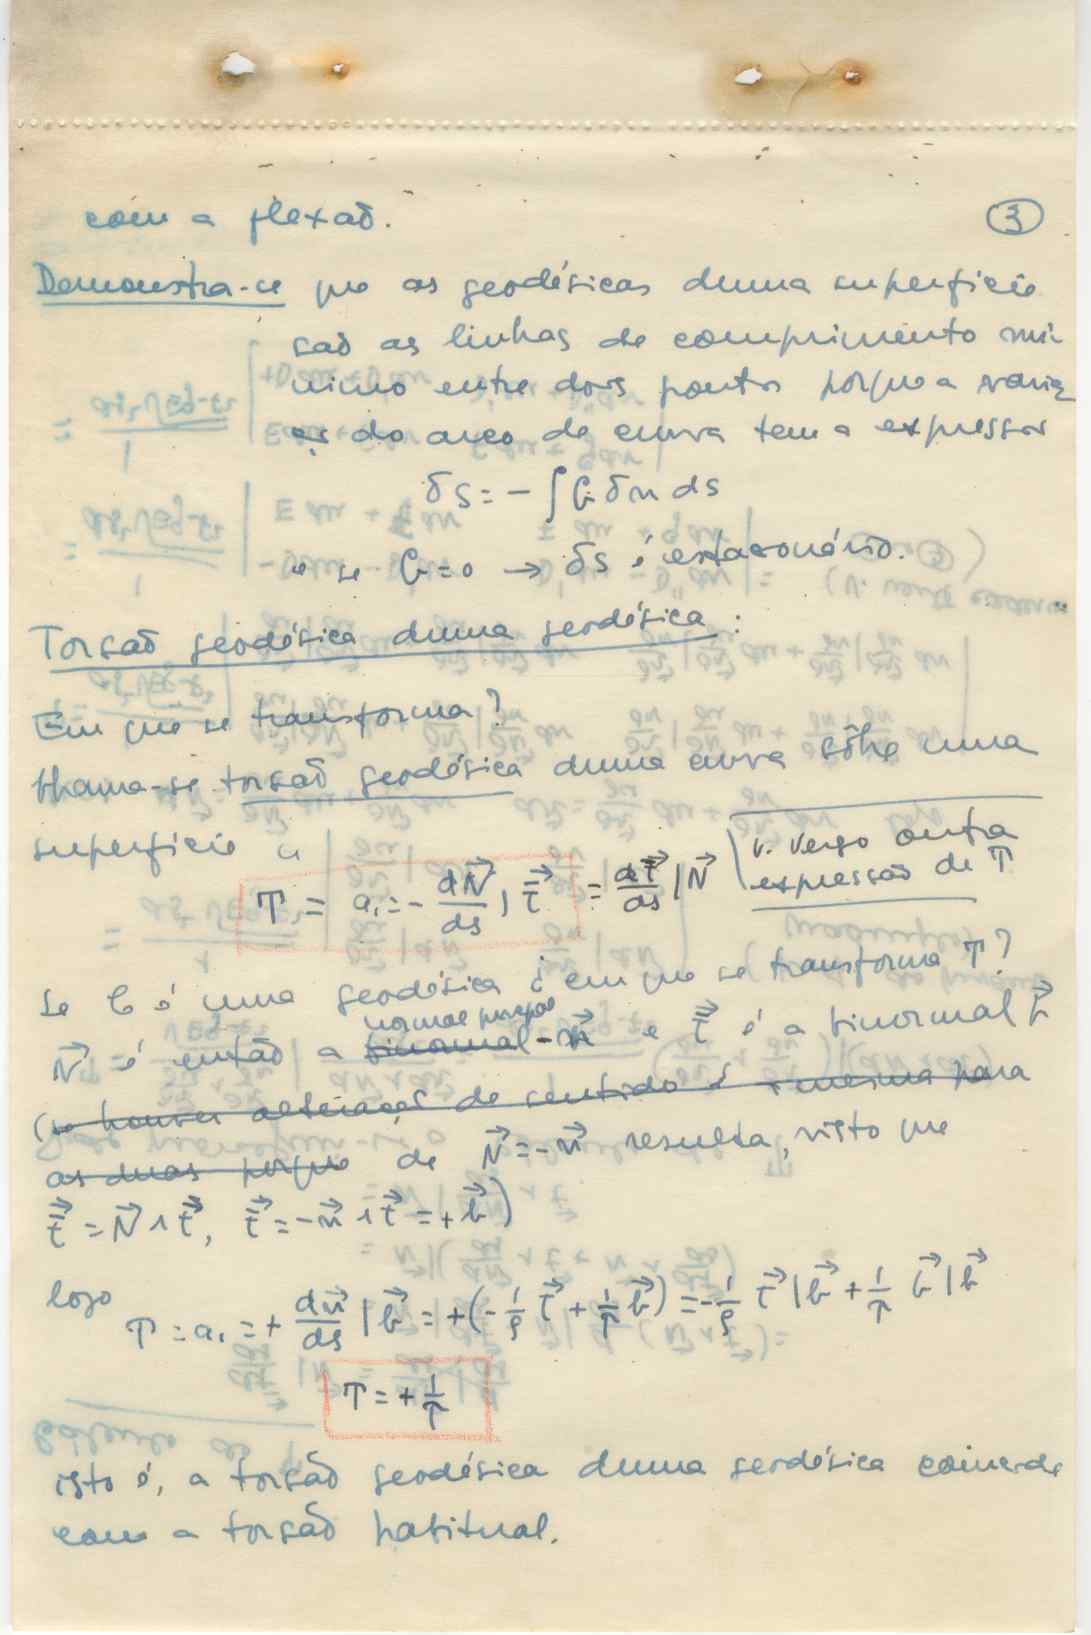 com a flexão.
③
Demonstra-se que as geodésicas duma superfície
são as linhas de comprimento mí-
nimo entre dois pontos porque a variaç
ão do arco de curva tem a expressão
δS = - ∫ G δn ds
e se G = 0 → δS é estacionário.
Torsão geodésica duma geodésica:
Em que se transforma?
Chama-se torsão geodésica duma curva sôbre uma
superfície a
T = a₁ = - dN⃗/ds | t̿⃗ = dt̿⃗/ds | N⃗
v. verso outra
expressão de T
Se C é uma geodésica é em que se transforma T?
normal principal
N⃗ é então a binormal - n⃗ e t̿⃗ é a binormal b⃗
(se houver alteração de sentido é a mesma para
as duas porque de N⃗ = -n⃗ resulta, visto que
t̿⃗ = N⃗ ∧ t⃗, t̿⃗ = -n⃗ ∧ t⃗ = + b⃗)
logo
T = a₁ = + dn⃗/ds | b⃗ = + (- 1/ρ t⃗ + 1/τ b⃗) = - 1/ρ t⃗ | b⃗ + 1/τ b⃗ | b⃗
T = + 1/τ
isto é, a torsão geodésica duma geodésica coincide
com a torsão habitual.